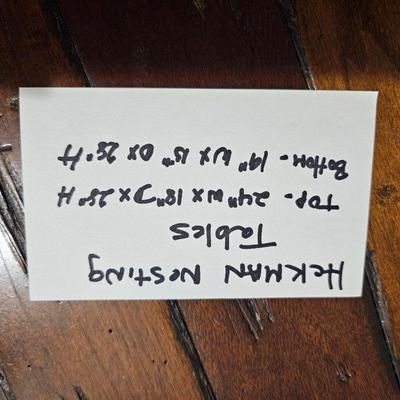 HEKMAN NESTING
Tables
TOP - 24" W X 18" D X 28" H
BOTTOM - 19" W X 15" D X 25" H